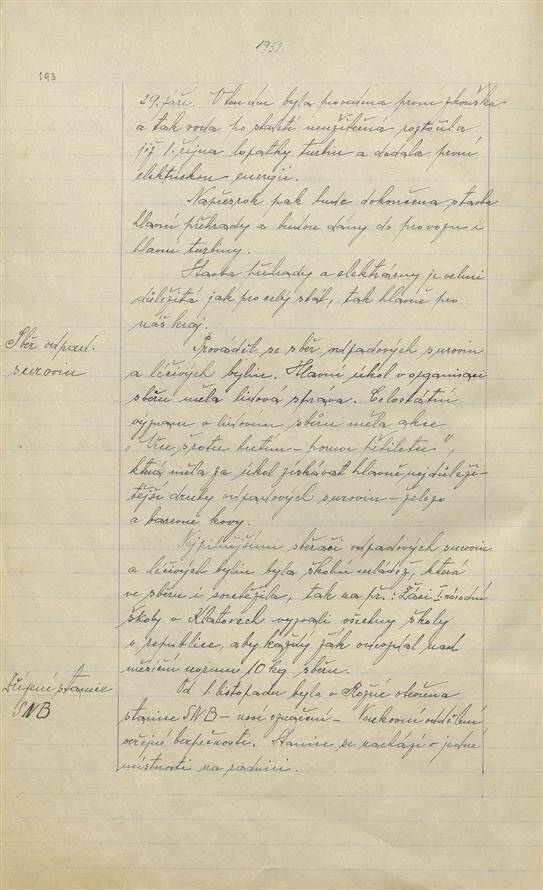 1952
193
29. září. V ten den byla provedena první zkouška
a tak voda po staletí neužitečná roztočila
již 1. října lopatky turbin a dodala první
elektrickou energii.
Napřesrok pak bude dokončena stavba
hlavní přehrady a budou dány do provozu i
hlavní turbiny.
Stavba přehrady a elektrárny je velmi
důležitá jak pro celý stát, tak hlavně pro
náš kraj.
Sběr odpad.
surovin
Prováděl se sběr odpadových surovin
a léčivých bylin. Hlavní úkol v organisaci
sběru měla lidová správa. Celostátní
význam v lidovém sběru měla akce
„Vše šrotu hutím - pomoc pětiletce",
která měla za úkol získávat hlavně nejdůleži-
tější druhy odpadových surovin - železo
a barevné kovy.
Nejpilnějšími sběrači odpadových surovin
a léčivých bylin byla školní mládež, která
ve sběru i soutěžila, tak na př.: Žáci I. národní
školy v Klatovech vyzvali všechny školy
v republice, aby každý žák odevzdal nad
měsíční normu 10 kg sběru.
Zřízení stanice
SNB
Od 1. listopadu byla v Rožné otevřena
stanice SNB - nové označení - Venkovní oddělení
veřejné bezpečnosti. Stanice se nachází v jedné
místnosti na radnici.